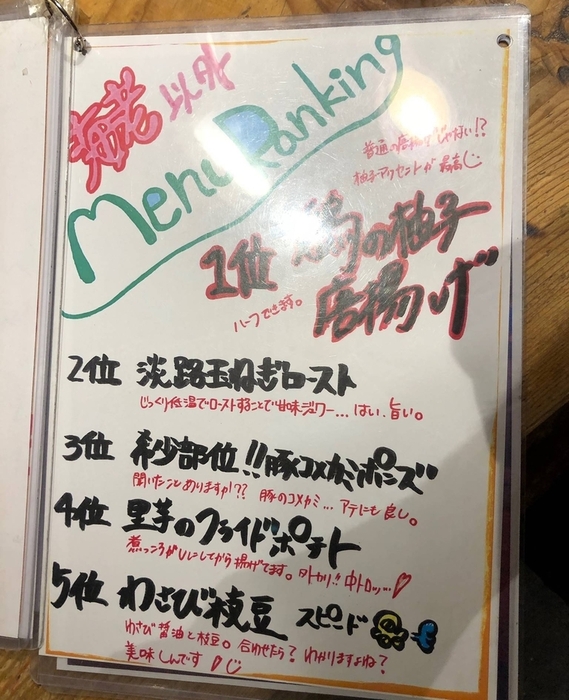 海老 以外
Menu Ranking
普通の唐揚げじゃない!?
柚子アクセントが最高
1位 鶏の柚子
唐揚げ
ハーフできます。
2位 淡路玉ねぎロースト
じっくり低温でローストすることで甘味ジュワー... はい、旨い。
3位 希少部位!!豚コメカミポンズ
聞いたことありますか!?? 豚のコメカミ... アテにも良し。
4位 里芋のフライドポテト
煮っころがしにしてから揚げてます。外カリ!! 中トロッ...
5位 わさび枝豆 スピード
わさび醤油と枝豆。合わせたら? わかりますよね?
美味しんです!